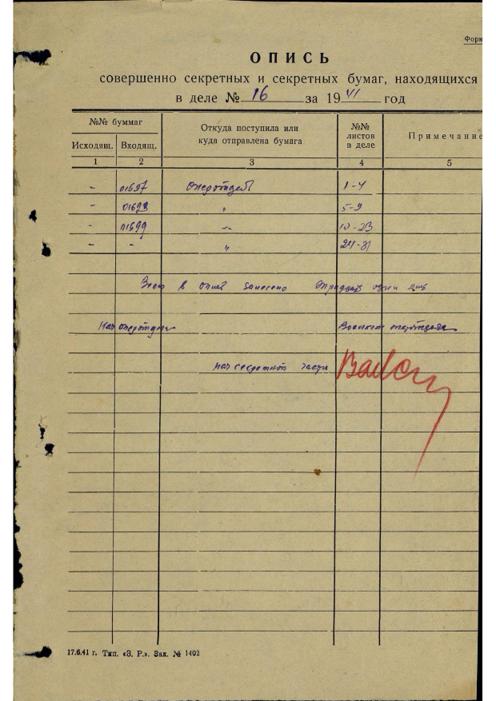 Форм
ОПИСЬ
совершенно секретных и секретных бумаг, находящихся
в деле № 16 за 1941 год
№№ буммаг
Исходящ. Входящ.
Откуда поступила или куда отправлена бумага
№№ листов в деле
Примечание
1 2 3 4 5
- 01697 Оперотдел 1-4
- 01698 " 5-9
- 01699 -"- 10-23
- - " 24-31
Всего в опись занесено
Нач оперотдела
нач секретной части
17.6.41 г. Тип. «З. Р.». Зак. № 1402